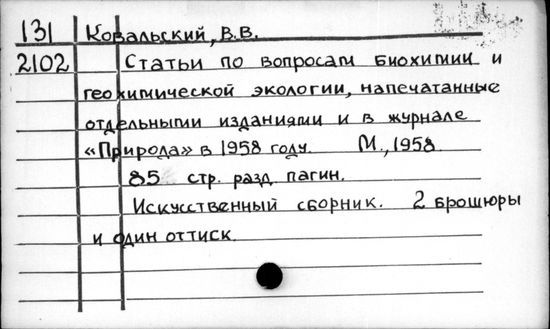 131 Ковальский, В.В.
2102 Статьи по вопросам биохимии и
геохимической экологии, напечатанные
отдельными изданиями и в журнале
«Природа» в 1958 году. М., 1958.
85 стр. разд. пагин.
Искусственный сборник. 2 брошюры
и один оттиск.